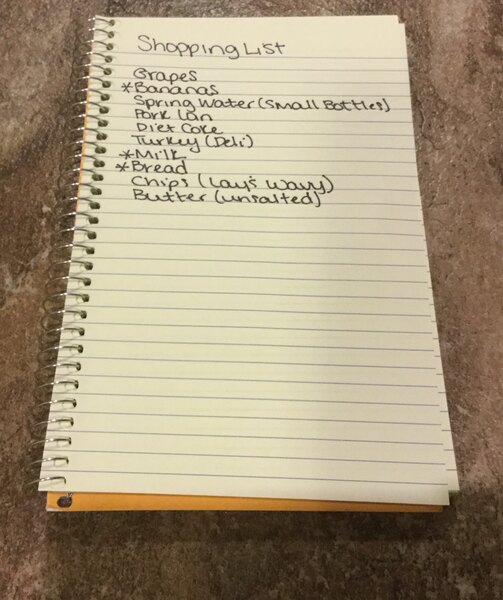 Shopping List
Grapes
*Bananas
Spring Water (Small Bottles)
Pork Loin
Diet Coke
Turkey (Deli)
*Milk
*Bread
Chips (Lay's Wavy)
Butter (unsalted)